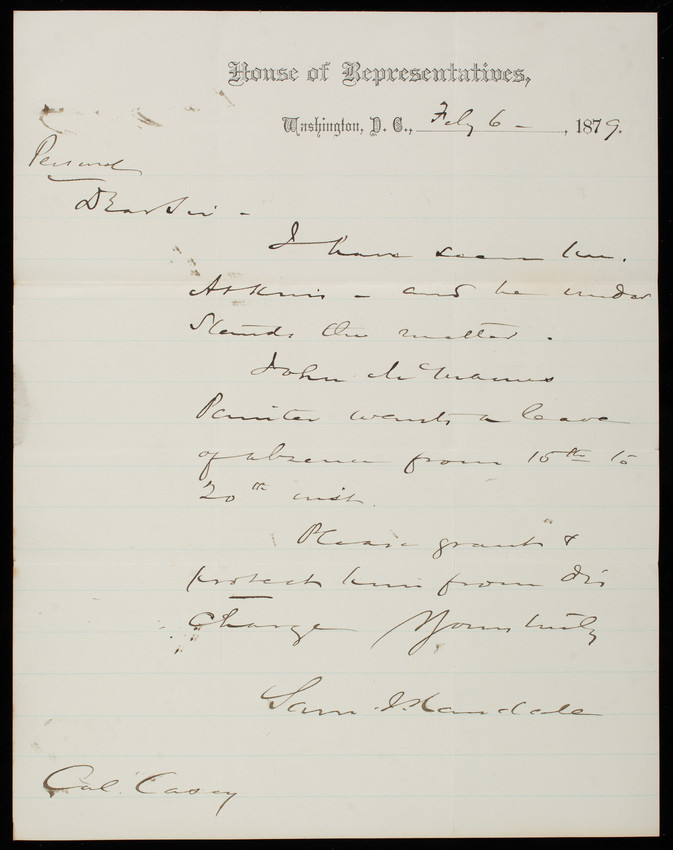 House of Representatives,
Washington, D. C., Feby 6 - , 1879.
Personal
Dear Sir -
I have seen him.
Askins - and he under
stands the matter.
John McManus
Painter wants a leave
of absence from 15th to
20th inst.
Please grant &
protect him from dis
charge Yours truly
Sam J Randall
Col. Casey